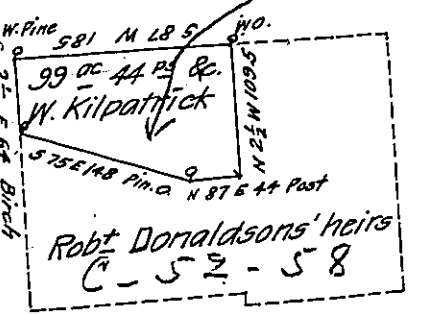 W. Pine
S 87 W 185
W.O.
99 ac 44 ps &c.
W. Kilpatrick
N 2½ W 109.5
S 2½ E 64 Birch
S 75 E 148 Pin.o
N 87 E 44 Post
Robt Donaldsons' heirs
C - 52 - 58